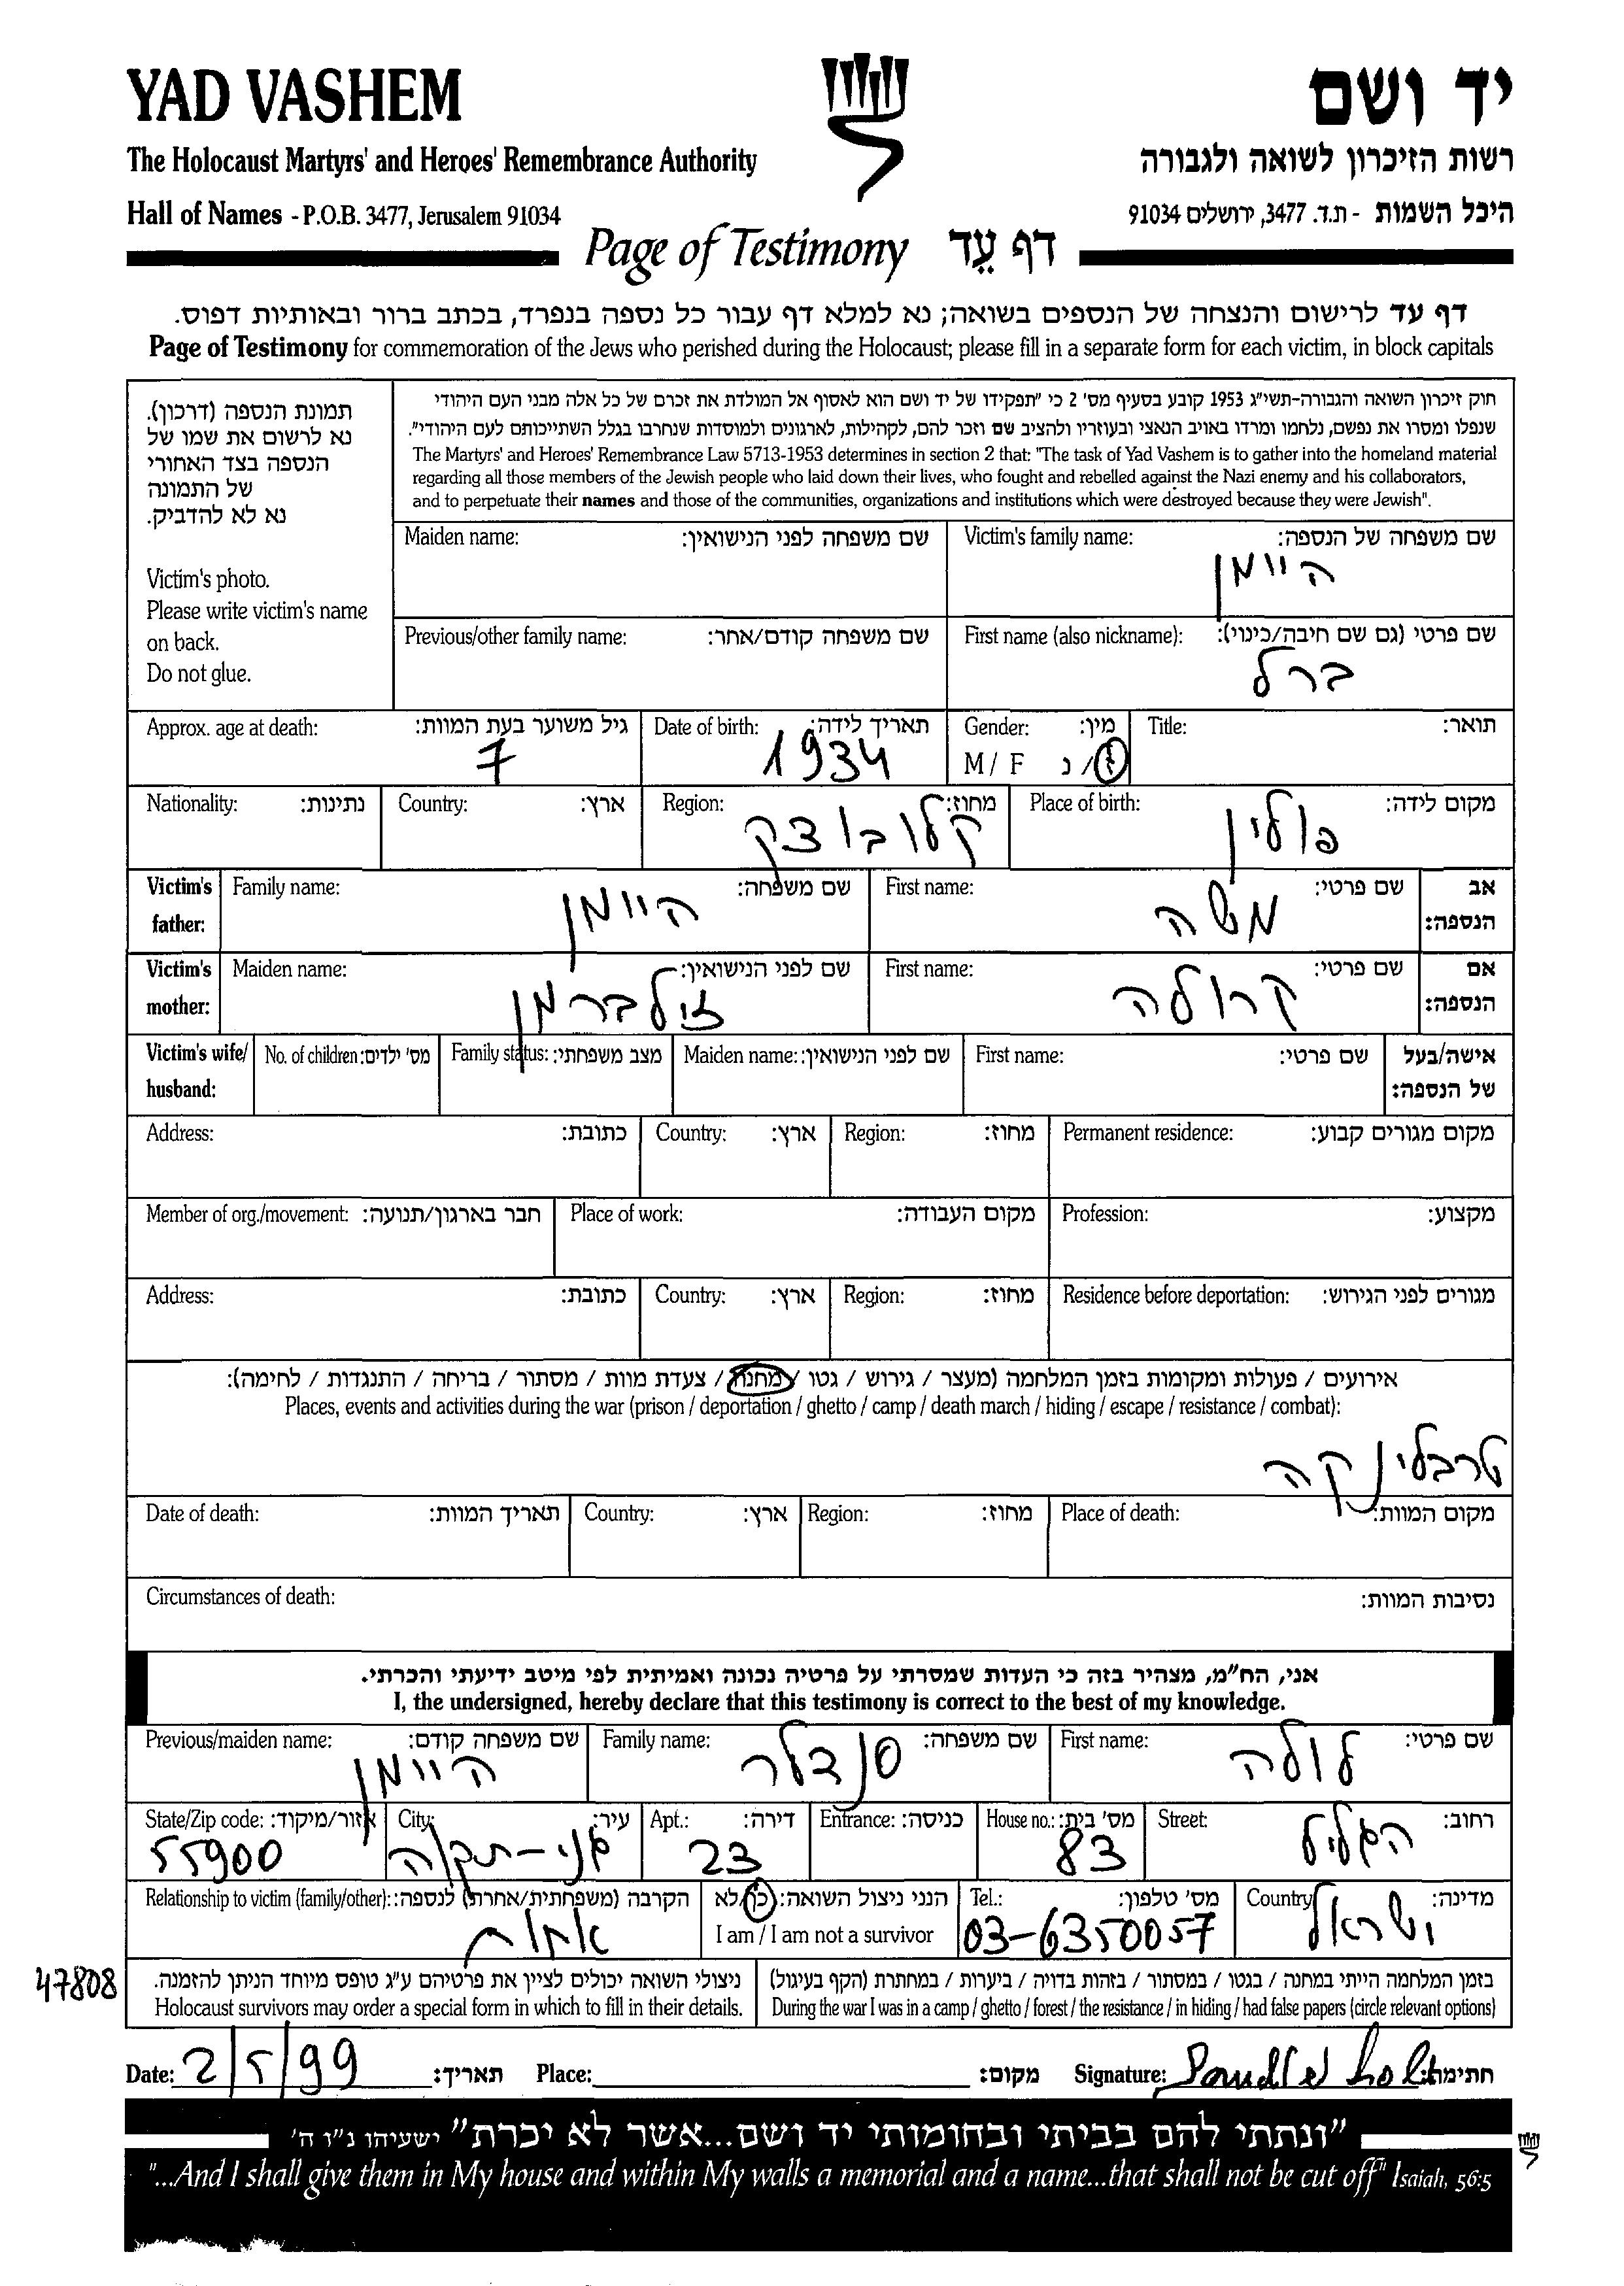 YAD VASHEM
יד ושם
The Holocaust Martyrs' and Heroes' Remembrance Authority
רשות הזיכרון לשואה ולגבורה
Hall of Names - P.O.B. 3477, Jerusalem 91034
היכל השמות - ת.ד. 3477, ירושלים 91034
Page of Testimony דף עֵד
דף עד לרישום והנצחה של הנספים בשואה; נא למלא דף עבור כל נספה בנפרד, בכתב ברור ובאותיות דפוס.
Page of Testimony for commemoration of the Jews who perished during the Holocaust; please fill in a separate form for each victim, in block capitals
תמונת הנספה (דרכון).
נא לרשום את שמו של
הנספה בצד האחורי
של התמונה
נא לא להדביק.
Victim's photo.
Please write victim's name
on back.
Do not glue.
חוק זיכרון השואה והגבורה-תשי״ג 1953 קובע בסעיף מס' 2 כי ״תפקידו של יד ושם הוא לאסוף אל המולדת את זכרם של כל אלה מבני העם היהודי
שנפלו ומסרו את נפשם, נלחמו ומרדו באויב הנאצי ובעוזריו ולהציב שם וזכר להם, לקהילות, לארגונים ולמוסדות שנחרבו בגלל השתייכותם לעם היהודי״.
The Martyrs' and Heroes' Remembrance Law 5713-1953 determines in section 2 that: "The task of Yad Vashem is to gather into the homeland material
regarding all those members of the Jewish people who laid down their lives, who fought and rebelled against the Nazi enemy and his collaborators,
and to perpetuate their names and those of the communities, organizations and institutions which were destroyed because they were Jewish".
Maiden name: שם משפחה לפני הנישואין: Victim's family name: שם משפחה של הנספה:
היימן
Previous/other family name: שם משפחה קודם/אחר: First name (also nickname): שם פרטי (גם שם חיבה/כינוי):
ברל
Approx. age at death: גיל משוער בעת המוות: Date of birth: תאריך לידה: Gender: מין: Title: תואר:
7 1934 M / F ז/ נ
Nationality: נתינות: Country: ארץ: Region: מחוז: Place of birth: מקום לידה:
קלובוצק פולין
Victim's father: Family name: שם משפחה: First name: שם פרטי: אב הנספה:
היימן משה
Victim's mother: Maiden name: שם לפני הנישואין: First name: שם פרטי: אם הנספה:
זילברמן קרולה
Victim's wife/ husband: No. of children: מס' ילדים: Family status: מצב משפחתי: Maiden name: שם לפני הנישואין: First name: שם פרטי: אישה/בעל של הנספה:
Address: כתובת: Country: ארץ: Region: מחוז: Permanent residence: מקום מגורים קבוע:
Member of org./movement: חבר בארגון/תנועה: Place of work: מקום העבודה: Profession: מקצוע:
Address: כתובת: Country: ארץ: Region: מחוז: Residence before deportation: מגורים לפני הגירוש:
אירועים / פעולות ומקומות בזמן המלחמה (מעצר / גירוש / גטו / מחנה / צעדת מוות / מסתור / בריחה / התנגדות / לחימה):
Places, events and activities during the war (prison / deportation / ghetto / camp / death march / hiding / escape / resistance / combat):
טרבלינקה
Date of death: תאריך המוות: Country: ארץ: Region: מחוז: Place of death: מקום המוות:
Circumstances of death: נסיבות המוות:
אני, הח״מ, מצהיר בזה כי העדות שמסרתי על פרטיה נכונה ואמיתית לפי מיטב ידיעתי והכרתי.
I, the undersigned, hereby declare that this testimony is correct to the best of my knowledge.
Previous/maiden name: שם משפחה קודם: Family name: שם משפחה: First name: שם פרטי:
היימן סנדלר לולה
State/Zip code: אזור/מיקוד: City: עיר: Apt.: דירה: Entrance: כניסה: House no.: מס' בית: Street: רחוב:
55900 גני-תקוה 23 83 הגליל
Relationship to victim (family/other): הקרבה (משפחתית/אחרת) לנספה: הנני ניצול השואה: כן/לא Tel.: מס' טלפון: Country מדינה:
אחות I am / I am not a survivor 03-6350057 ישראל
47808
ניצולי השואה יכולים לציין את פרטיהם ע״ג טופס מיוחד הניתן להזמנה. בזמן המלחמה הייתי במחנה / בגטו / במסתור / בזהות בדויה / ביערות / במחתרת (הקף בעיגול)
Holocaust survivors may order a special form in which to fill in their details. During the war I was in a camp / ghetto / forest / the resistance / in hiding / had false papers (circle relevant options)
Date: 2/5/99 תאריך: Place: מקום: Signature: חתימה:
״ונתתי להם בביתי ובחומותי יד ושם...אשר לא יכרת״ ישעיהו נ״ו ה'
"...And I shall give them in My house and within My walls a memorial and a name...that shall not be cut off" Isaiah, 56:5